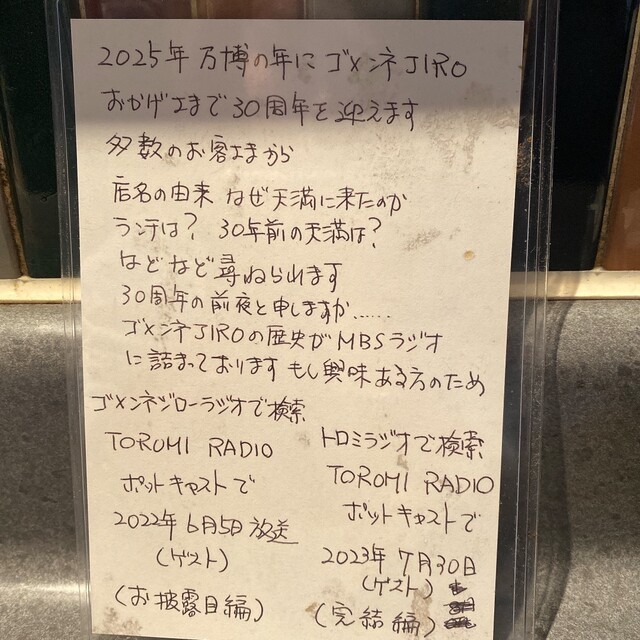 2025年 万博の年に ゴメンネJIRO
おかげさまで30周年を迎えます
多数のお客さまから
店名の由来 なぜ天満に来たのか
ランチは? 30年前の天満は?
などなど尋ねられます
30周年の前夜と申しますか……
ゴメンネJIROの歴史がMBSラジオ
に詰まっております もし興味ある方のため
ゴメンネジローラジオで検索
TOROMI RADIO
ポットキャストで
2022年6月5日放送
(ゲスト)
(お披露目編)
トロミラジオで検索
TOROMI RADIO
ポットキャストで
2023年 7月30日
(ゲスト)
(完結編)